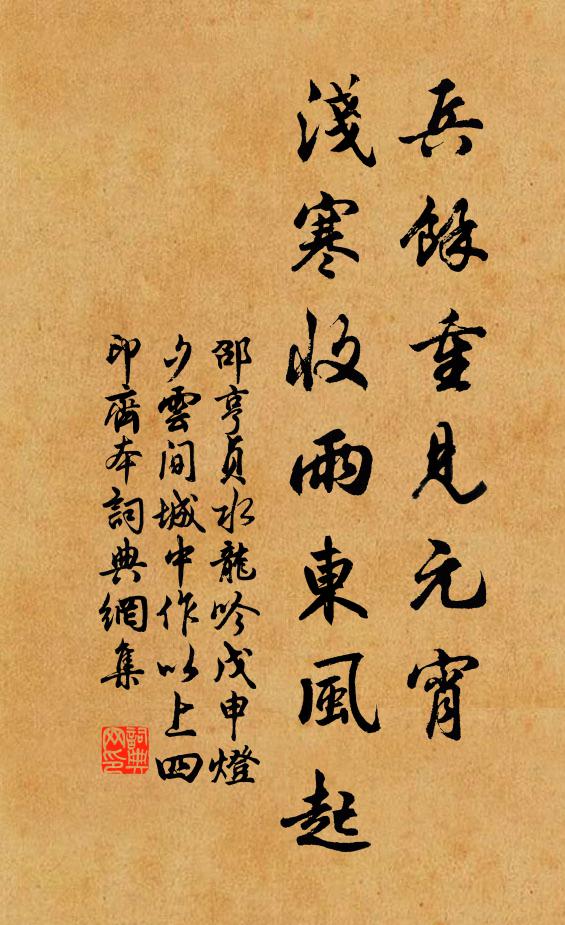 兵餘重見元宵
淺寒收雨東風起
邵亨貞水龍吟戊申燈
夕雲間城中作以上四
印齋本詞典網集
詞典
网印